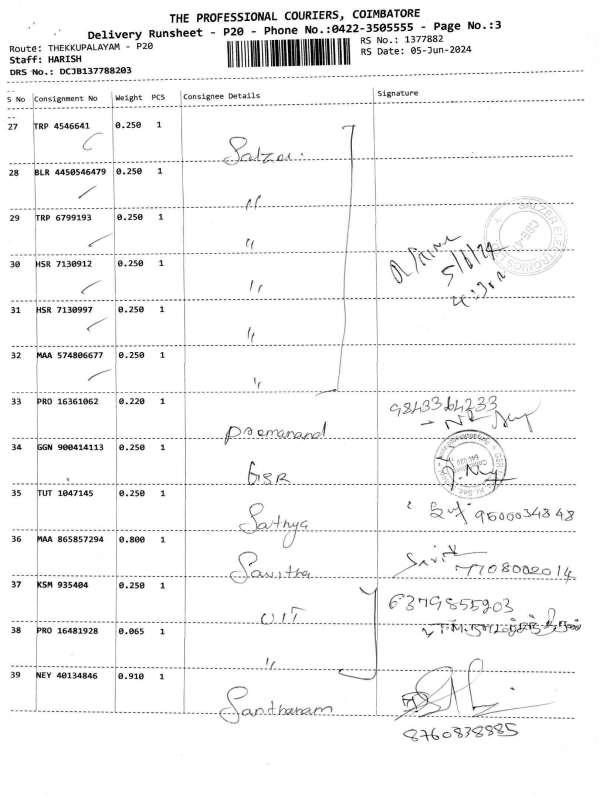 THE PROFESSIONAL COURIERS, COIMBATORE
Delivery Runsheet - P20 - Phone No.:0422-3505555 - Page No.:3
Route: THEKKUPALAYAM - P20
RS No.: 1377882
Staff: HARISH
RS Date: 05-Jun-2024
DRS No.: DCJB137788203
S No Consignment No Weight PCS Consignee Details Signature
27 TRP 4546641 0.250 1
Salzer
28 BLR 4450546479 0.250 1
〃
29 TRP 6799193 0.250 1
〃
5/6/24
30 HSR 7130912 0.250 1
〃
31 HSR 7130997 0.250 1
〃
32 MAA 574806677 0.250 1
〃
33 PRO 16361062 0.220 1 9843364233
Premanand
34 GGN 900414113 0.250 1
GSR
35 TUT 1047145 0.250 1
Sathya 9500034348
36 MAA 865857294 0.800 1
Savitha 7708002014
37 KSM 935404 0.250 1 6379855203
UIT
38 PRO 16481928 0.065 1
〃
39 NEY 40134846 0.910 1
Santhanam
8760838885